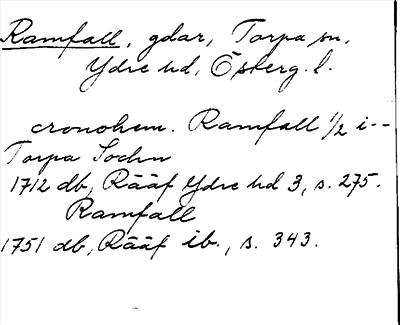 Ramfall, gdar, Torpa sn,
Ydre hd, Österg. l.
cronohem. Ramfall 1/2 i--
Torpa Sochn
1712 db, Rääf Ydre hd 3, s. 275.
Ramfall
1751 db, Rääf ib., s. 343.